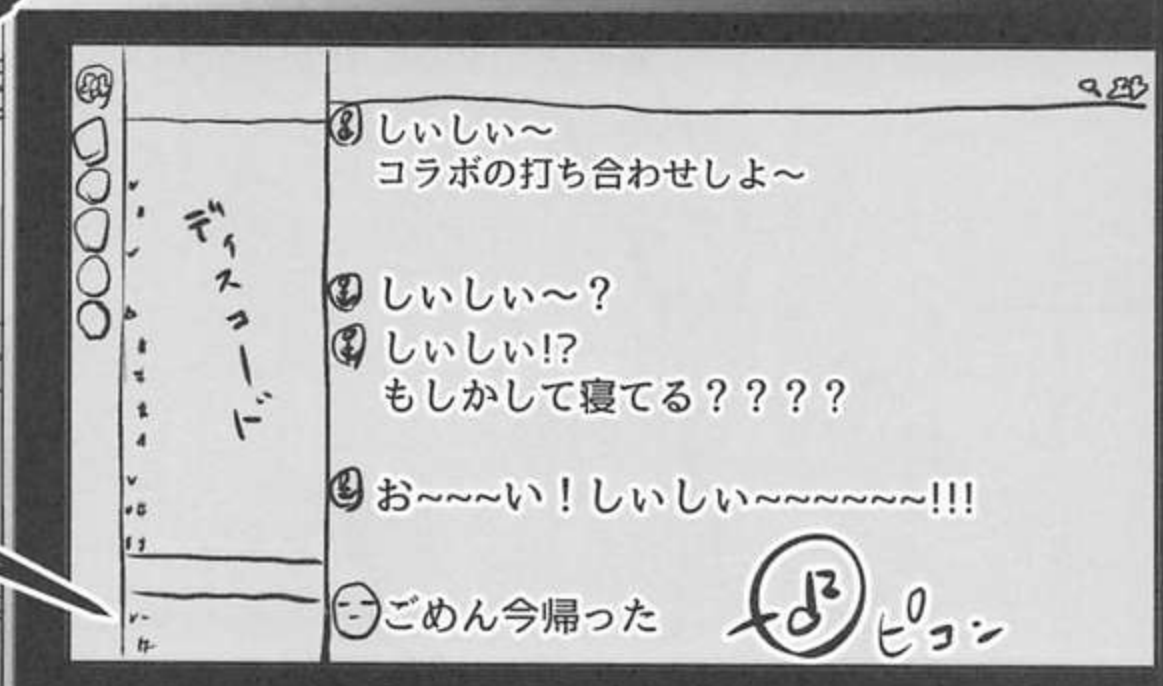 ディスコード
しぃしぃ〜
コラボの打ち合わせしよ〜
しぃしぃ〜？
しぃしぃ!?
もしかして寝てる？？？？
お~~~い！しぃしぃ~~~~~~!!!
ごめん今帰った
ピコン